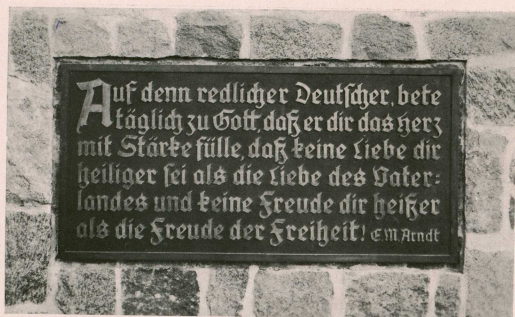 Auf denn redlicher Deutscher, bete
täglich zu Gott, daß er dir das Herz
mit Stärke fülle, daß keine Liebe dir
heiliger sei als die Liebe des Vater-
landes und keine Freude dir heißer
als die Freude der Freiheit! E.M. Arndt